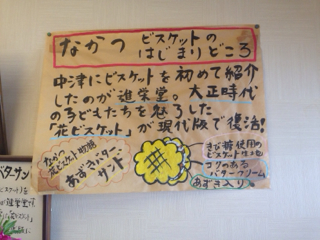 なかつ ビスケットの
はじまりどころ
中津にビスケットを初めて紹介
したのが進栄堂。大正時代
の子どもたちを魅了した
「花ビスケット」が現代版で復活!
なかつ
花ビスケット物語
あずきバター
サンド
きび糖使用の
ビスケット生地
コクのある
バタークリーム
あずき入り
バターサン